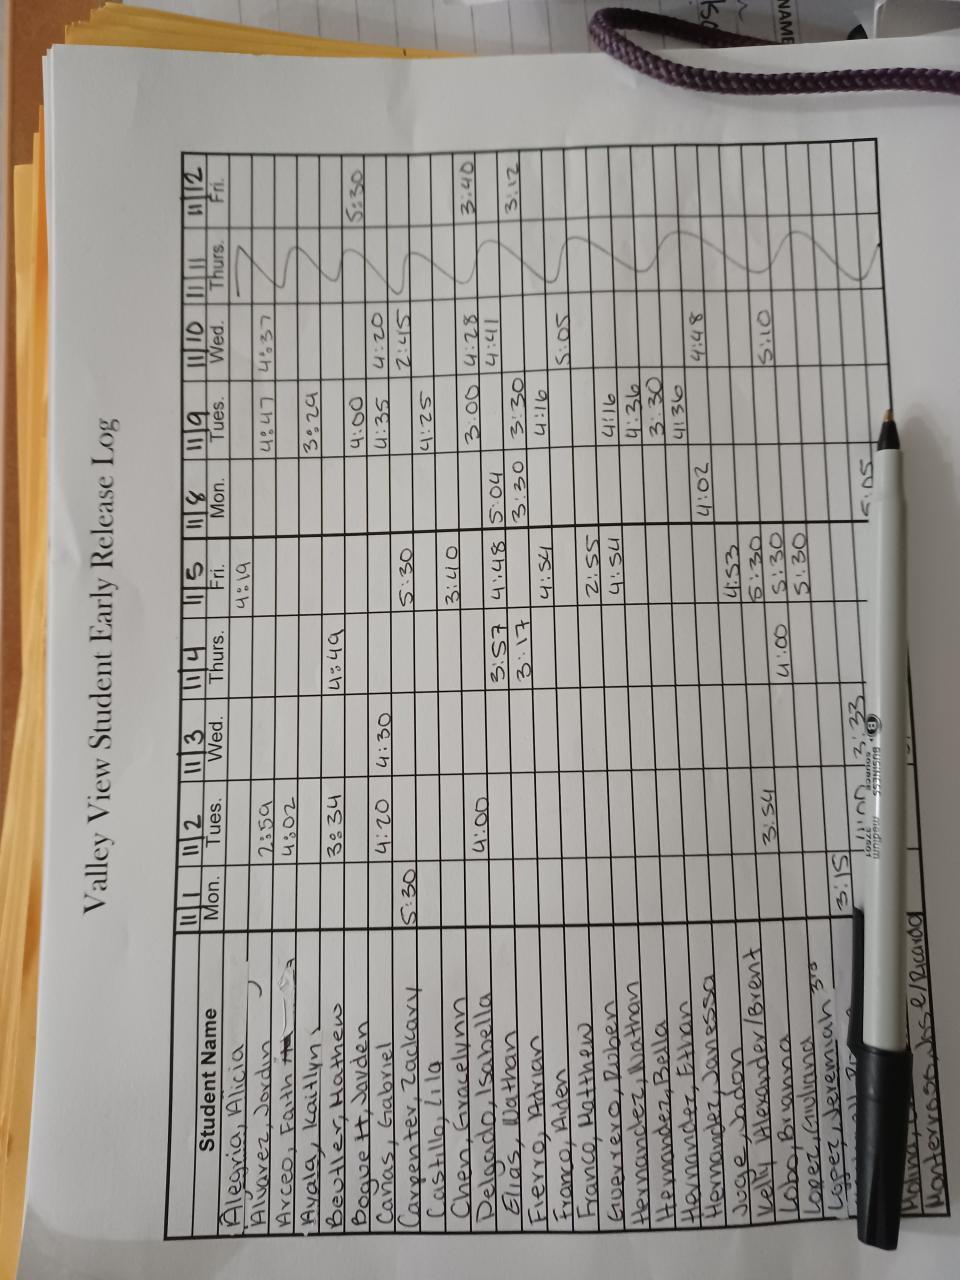 Valley View Student Early Release Log
11/1 11/2 11/3 11/4 11/5 11/8 11/9 11/10 11/11 11/12
Student Name Mon. Tues. Wed. Thurs. Fri. Mon. Tues. Wed. Thurs. Fri.
Alegria, Alicia 4:19
Alvarez, Jordin 2:59 4:47 4:37
Arceo, Faith 4:02
Ayala, Kaitlyn 3:29
Beutler, Mathew 3:34 4:49
Boquett, Jayden 4:00 5:30
Cañas, Gabriel 4:20 4:30 4:35 4:20
Carpenter, Zackary 5:30 5:30 2:45
Castillo, Lila 4:25
Chen, Gracelynn 3:40
Delgado, Isabella 4:00 3:00 4:28 3:40
Elias, Nathan 3:57 4:48 5:04 4:41
Fierro, Adrian 3:17 3:30 3:30 3:12
Franco, Aiden 4:54 4:16
Franco, Matthew 5:05
Guerrero, Ruben 2:55
Hernandez, Nathan 4:54 4:16
Hernandez, Bella 4:36
Hernandez, Ethan 3:30
Hernandez, Janessa 4:36
Juge, Jadon 4:02 4:48
Kelly, Alexander/Brent 4:53
Lobo, Brianna 3:54 5:30
Lopez, Giuliana 4:00 5:30 5:10
Lopez, Jeremiah 3rd 3:15 5:30
3:33 5:05
Monterroso, Jose/Ricardo
BUSINESS SOURCE
medium
37501
NAME